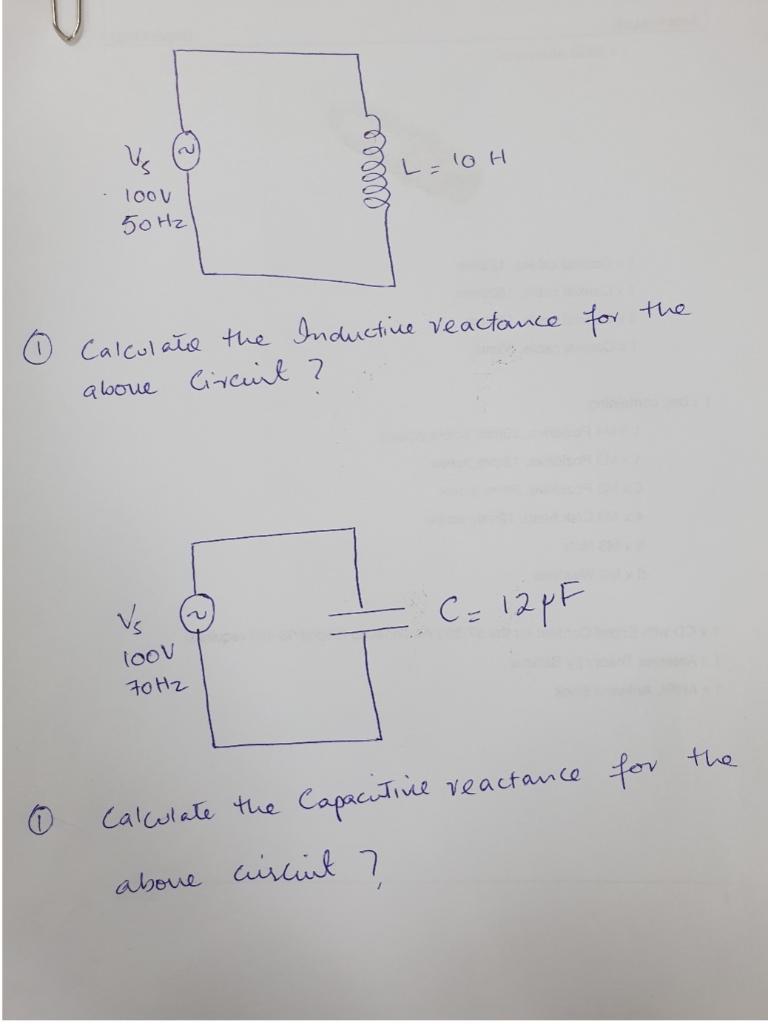 Vs
100V
50Hz
L = 10 H
① Calculate the Inductive reactance for the
above Circuit ?
Vs
100V
70Hz
C = 12μF
① Calculate the Capacitive reactance for the
above circuit ?